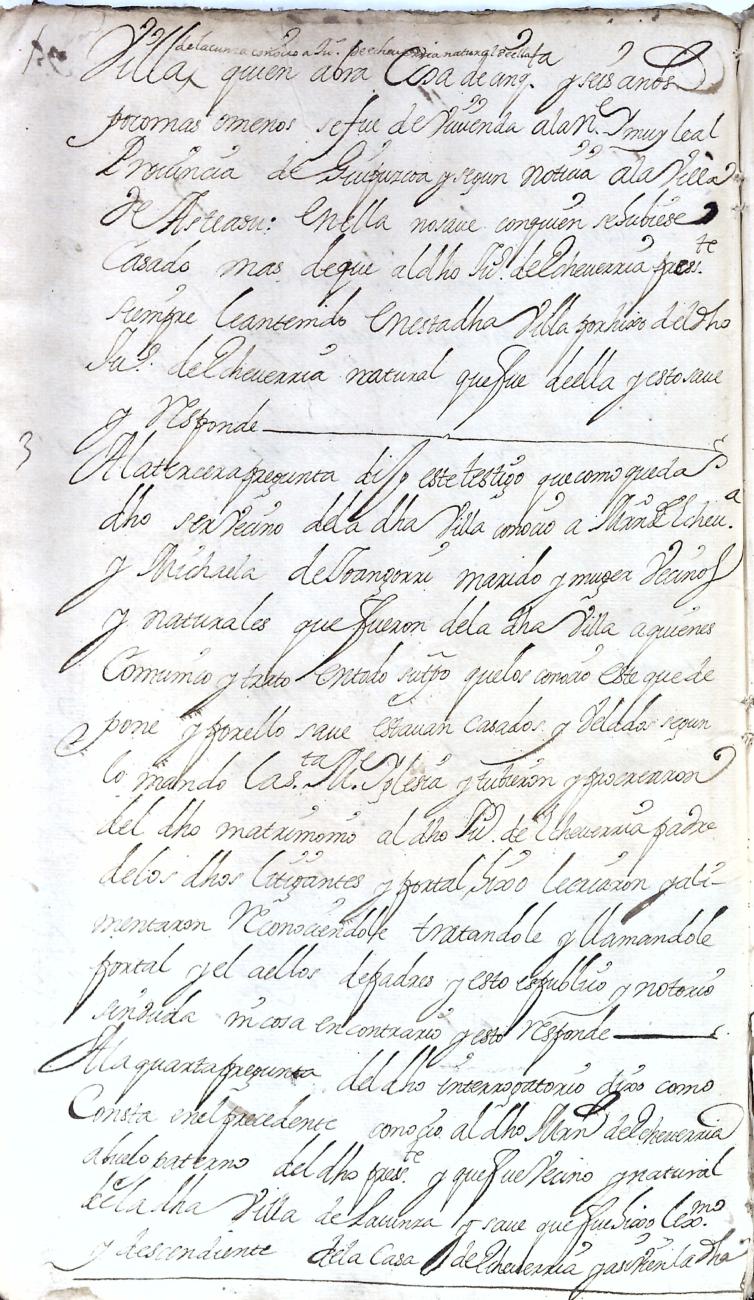 de lacunza conocio a Juº. de echeverria natural de ella
Villa, quien aora Cosa de cinqta y seis años
poco mas omenos se fue de vivienda ala Ne. Y muy leal
Provincia de Guipuzcoa y segun noticia ala Villa
de Asteasu: Enella nosave conquien sehubiese
Casado mas deque aldho Juº. de Echeverria presste
siempre leantenido Enestadha Villa porhixo deldho
Juº. de Echeverria natural quefue deella y esto save
y Responde
3 Alatercerapregunta dijo este testigo que como queda
dho ser vecino dela dha Villa conocio a Mrn Echeva.
y Michaela de marido y muger Vecinos
y naturales que fueron dela dha Villa aquienes
Comunico y trato Entodo sutpo quelos conocio Este que de
pone y porello save Estavan Casados y Velados segun
lo mando Lasta. Me Yglesia y tubieron y procrearon
del dho matrimonio al dho Juº de Echeverria padre
delos dhos litigantes y portal hixo lecriaron y ali-
mentaron Reconociendole tratandole y llamandole
portal y el aellos depadres y esto espublico y notorio
sinduda ni cosa en contrario y esto Responde
Ala quarta pregunta del dho interrogatorio dixo como
Consta enel precedente conocio aldho Mrn de Echeverria
abuelo paterno del dho presste. y quefue Vecino y natural
dela dha Villa de Lacunza y save que fue hixo lexmo.
y descendiente dela Casa de Echeverria y asi en la dha